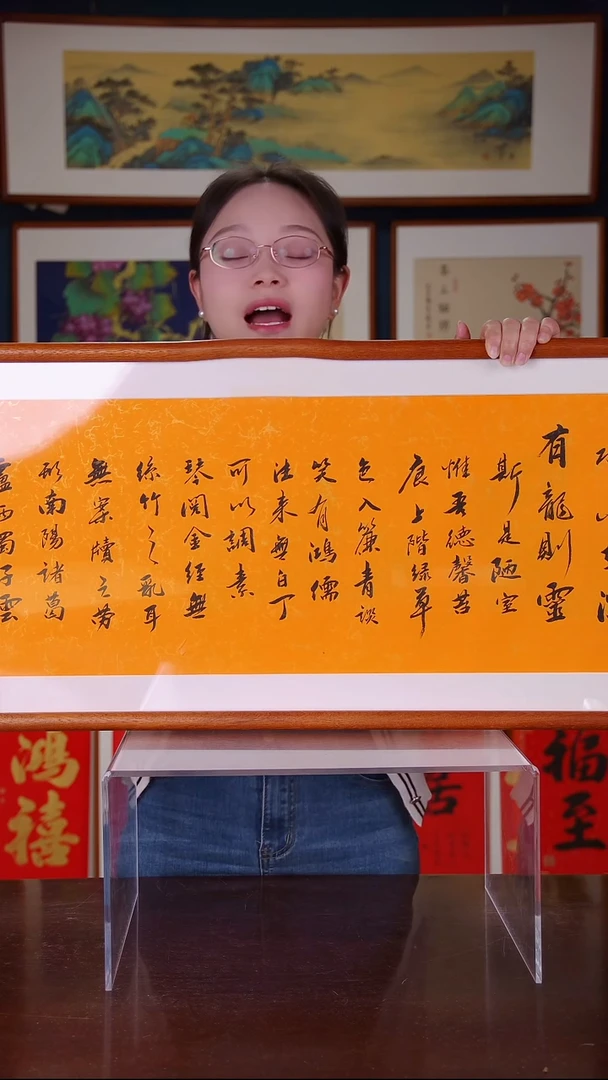 有龍則靈
斯是陋室
惟吾德馨苔
痕上階緑草
色入簾青談
笑有鴻儒
往來無白丁
可以調素
琴閲金經無
絲竹之亂耳
無案牘之勞
形南陽諸葛
廬西蜀子雲
鴻禧
福至